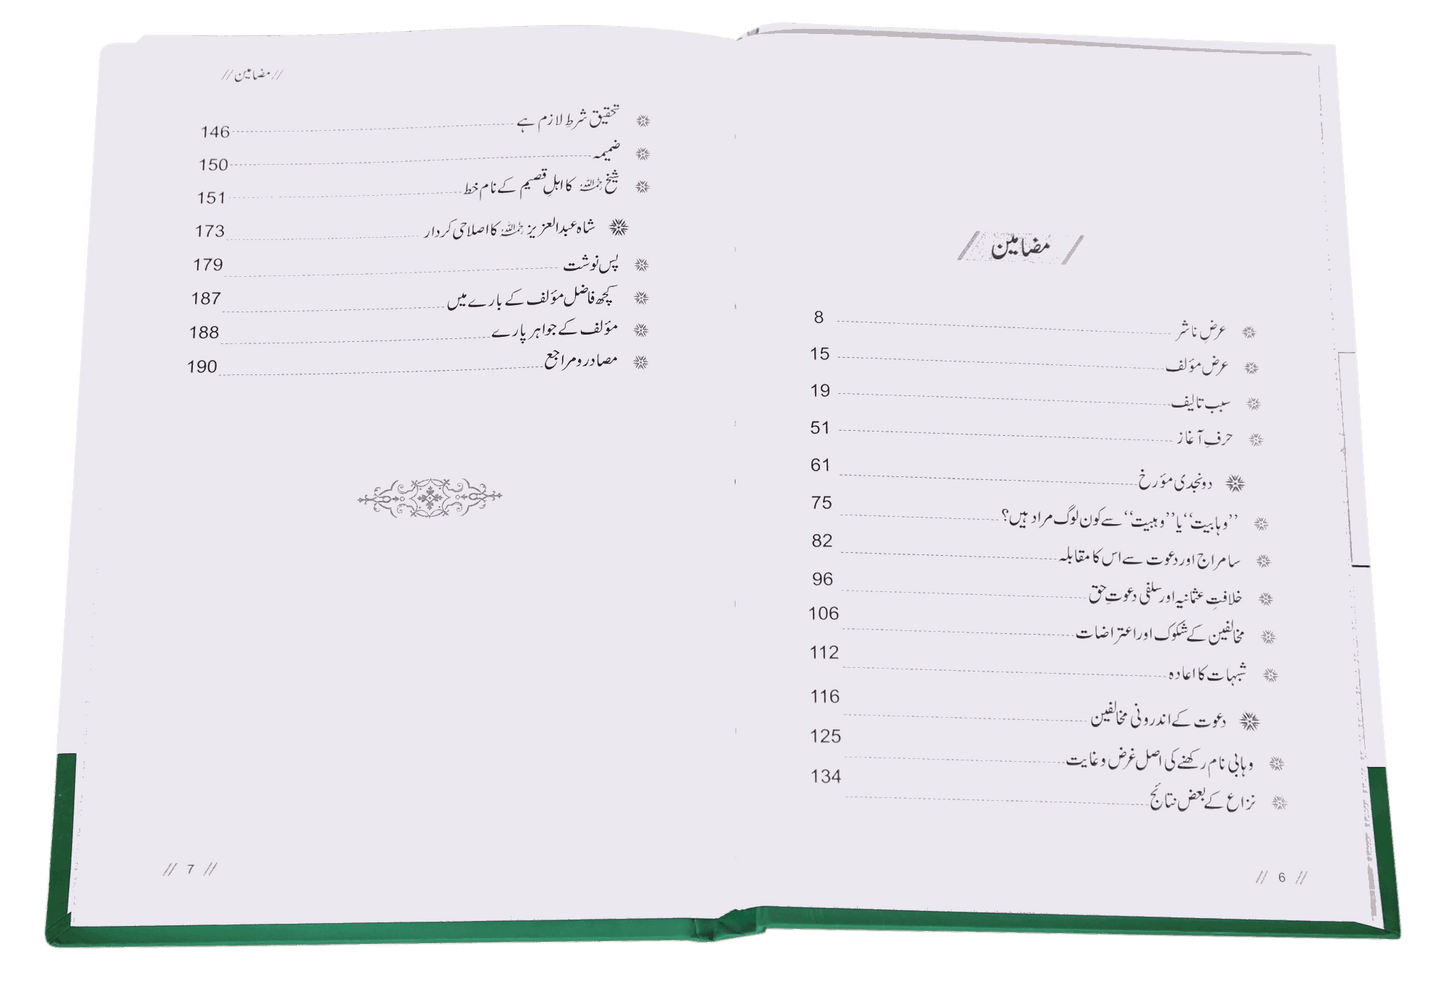 مضامین
عرضِ ناشر 8
عرض مؤلف 15
سبب تالیف 19
حرفِ آغاز 51
دو نجدی مؤرخ 61
”وہابیت“ یا ”وہبیت“ سے کون لوگ مراد ہیں؟ 75
سامراج اور دعوت سے اس کا مقابلہ 82
خلافتِ عثمانیہ اور سلفی دعوتِ حق 96
مخالفین کے شکوک اور اعتراضات 106
شبہات کا اعادہ 112
دعوت کے اندرونی مخالفین 116
وہابی نام رکھنے کی اصل غرض و غایت 125
نزاع کے بعض نتائج 134
// 6 //
// مضامین //
تحقیق شرطِ لازم ہے 146
ضمیمہ 150
شیخ رحمہ اللہ کا اہلِ قصیم کے نام خط 151
شاہ عبدالعزیز رحمہ اللہ کا اصلاحی کردار 173
پس نوشت 179
کچھ فاضل مؤلف کے بارے میں 187
مؤلف کے جواہر پارے 188
مصادر و مراجع 190
// 7 //